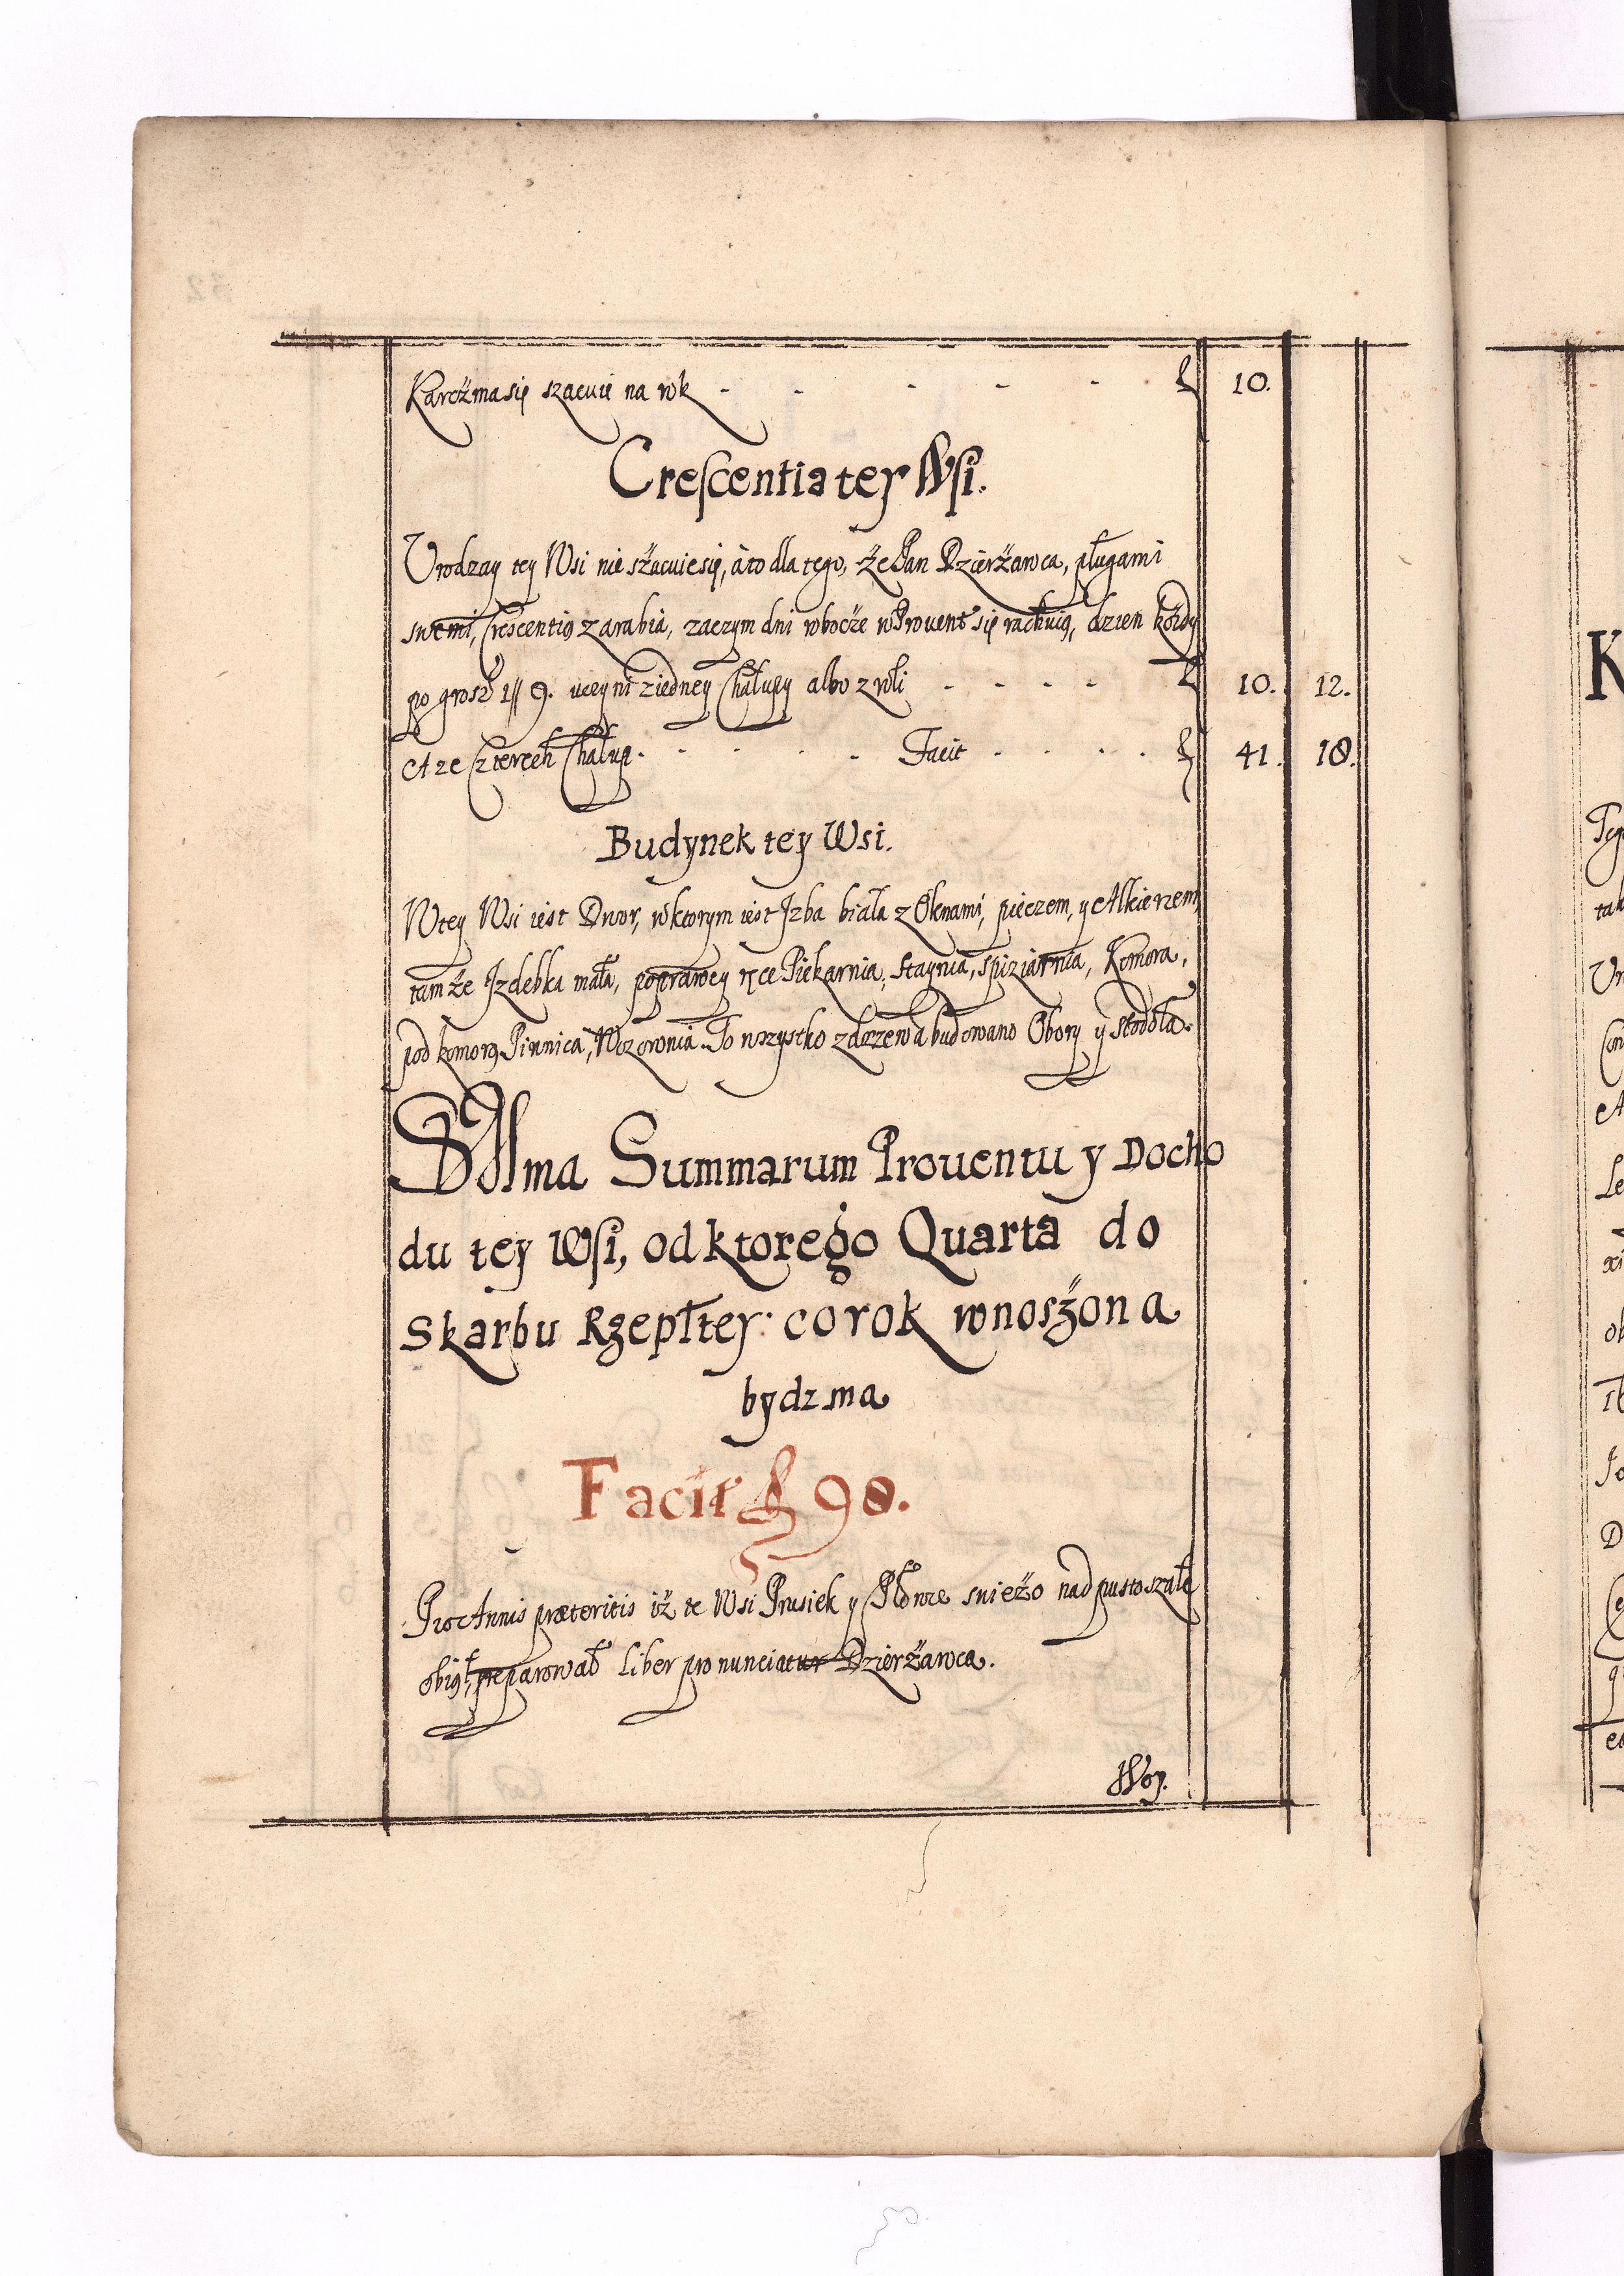 Karczma się szacuie na rok - - - - - fl 10.
Crescentia tey Wsi.
Urodzay tey Wsi nie szacuie się, a to dla tego, że Pan Dzierżawca, pługami
swemi, Crescentią zarabia, zaczym dni robocze w Prouent się rachuią, dzien kożdy
po groszu 1 // 9. uczyni z iedney Chałupy albo z roli - - - - fl 10. 12.
A ze Czterech Chałup. - - - - Facit - - - - fl 41. 18.
Budynek tey Wsi.
W tey Wsi iest Dwor, w ktorym iest Izba biała z Oknami, piecem, y Alkierzem,
tam że Izdebka mała, po prawey ręce Piekarnia, staynia, spiziarnia, Komora,
pod komorą Piwnica, Wozownia. To wszystko z drzewa budowano Obory y stodoła.
Summa Summarum Prouentu y Docho
du tey Wsi, od ktorego Quarta do
Skarbu Rzepltey: co rok wnoszona
bydz ma
Facit fl 98.
Pro Annis præteritis iż te Wsi Prusiek y Płonre snieżo nad pustoszałe
obiął, preparował Liber pronunciatur Dzierżawca.
Woy.